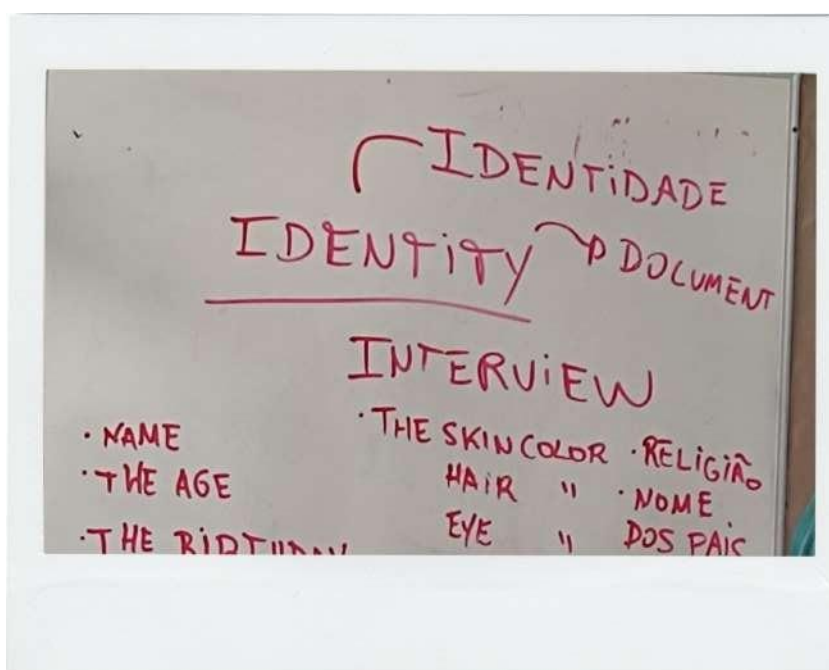 IDENTIDADE
IDENTITY
DOCUMENT
INTERVIEW
· NAME
· THE AGE
· THE BIRTHDAY
· THE SKIN COLOR
HAIR "
EYE "
· RELIGIÃO
· NOME
DOS PAIS